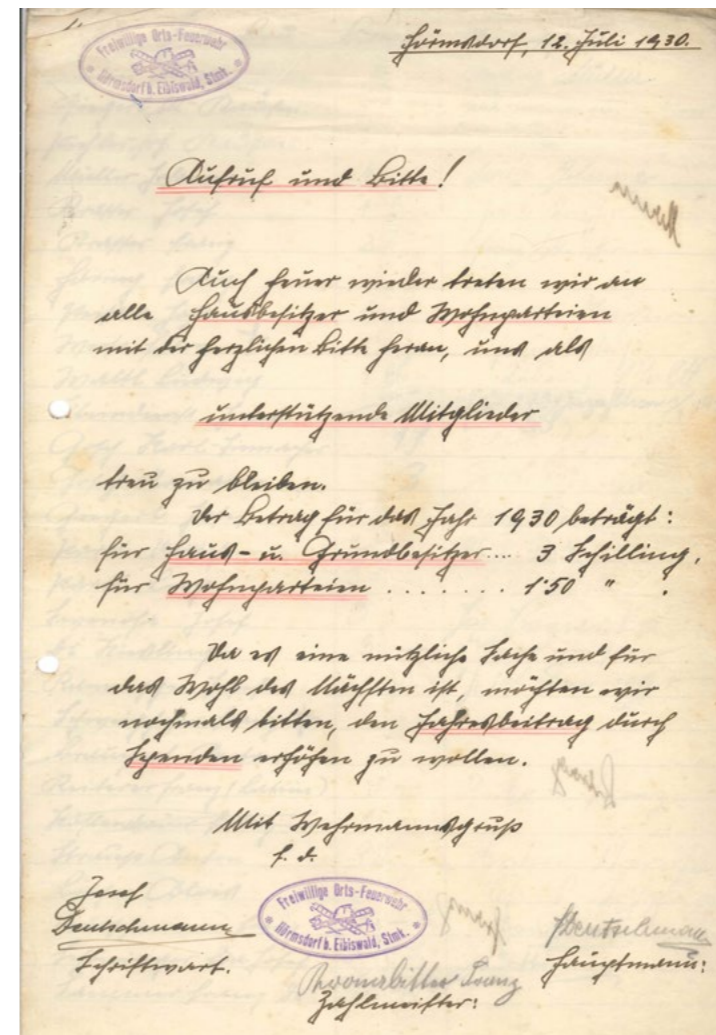 Freiwillige Orts-Feuerwehr
Hörmsdorf b. Eibiswald, Stmk.
Hörmsdorf, 12. Juli 1930.
Aufruf und Bitte!
Auch heuer wieder treten wir an
alle Hausbesitzer und Wohnparteien
mit der herzlichen Bitte heran, uns als
unterstützende Mitglieder
treu zu bleiben.
Der Betrag für das Jahr 1930 beträgt:
für Haus- u. Grundbesitzer... 3 Schilling,
für Wohnparteien ........ 1·50 " .
Da es eine nützliche Sache und für
das Wohl des Nächsten ist, möchten wir
nochmals bitten, den Jahresbeitrag durch
Spenden erhöhen zu wollen.
Mit Wehrmannsgruß
f. d.
Freiwillige Orts-Feuerwehr
Hörmsdorf b. Eibiswald, Stmk.
Josef
Deutschmann
Schriftwart.
Franz
Zahlmeister:
Deutschmann
Hauptmann: